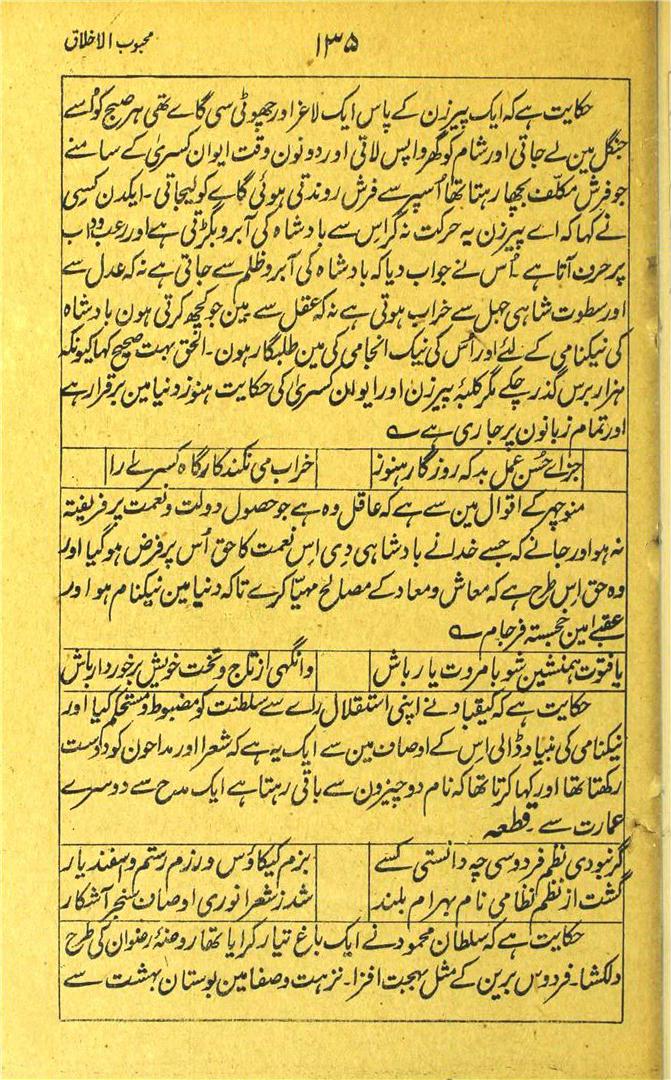 محبوب الاخلاق
۱۳۵
حکایت ہے کہ ایک پیرزن کے پاس ایک لاغر اور چھوٹی سی گاے تھی ہر صبح کو اُسے
جنگل مین لے جاتی اور شام کو گھر واپس لاتی اور دونون وقت ایوان کسریٰ کے سامنے
جو فرش مکلّف بچھا رہتا تھا اُسپر سے فرش روندتی ہوئی گاے کو لیجاتی ۔ ایکدن کسی
نے کہا کہ اے پیرزن یہ حرکت نہ کر اِس سے بادشاہ کی آبرو بگڑتی ہے اور رعب وداب
پر حرف آتا ہے ۔ اُس نے جواب دیا کہ بادشاہ کی آبرو ظلم سے جاتی ہے نہ کہ عدل سے
اور سطوت شاہی جہل سے خراب ہوتی ہے نہ کہ عقل سے مین جو کچھ کرتی ہون بادشاہ
کی نیکنامی کے لئے اور اُس کی نیک انجامی کی مین طلبگار ہون ۔ الحق بہت صحیح کہا کیونکہ
ہزار برس گذر چکے مگر کلبۂ پیرزن اور ایوان کسریٰ کی حکایت ہنوز دنیا مین برقرار ہے
اور تمام زبانون پر جاری ہے ؎
جزاے حُسن عمل بد کہ روزگار ہنوز خراب می نکند کارگاہ کسرےٰ را
منوچہر کے اقوال مین سے ہے کہ عاقل وہ ہے جو حصول دولت و نعمت پر فریفتہ
نہ ہو اور جانے کہ جسے خدا نے بادشاہی دی اِس نعمت کا حق اُس پر فرض ہو گیا اور
وہ حق اِس طرح ہے کہ معاش و معاد کے مصالح مہیّا کرے تاکہ دنیا مین نیکنام ہو اور
عقبےٰ مین خجستہ فرجام ؎
بافتوت ہمنشین شو بامروت یار باش وانگہی از تاج وتخت خویش برخوردار باش
حکایت ہے کہ کیقباد نے اپنی استقلال راے سے سلطنت کو مضبوط و مستحکم کیا اور
نیکنامی کی بنیاد ڈالی اِس کے اوصاف مین سے ایک یہ ہے کہ شعرا اور مداحون کو دوست
رکھتا تھا اور کہا کرتا تھا کہ نام دو چیزون سے باقی رہتا ہے ایک مدح سے دوسرے
عمارت سے ۔ قطعہ
گر نبودی نظم فردوسی چہ دانستی کسے بزم کیکاوس و رزم رستم و اسفندیار
گشت از نظم نظامی نام بہرام بلند شد ز شعر انوری اوصاف سنجر آشکار
حکایت ہے کہ سلطان محمود نے ایک باغ تیار کرایا تھا روضۂ رضوان کی طرح
دلکشا ۔ فردوس برین کے مثل بہجت افزا ۔ نزہت وصفا مین بوستان بہشت سے